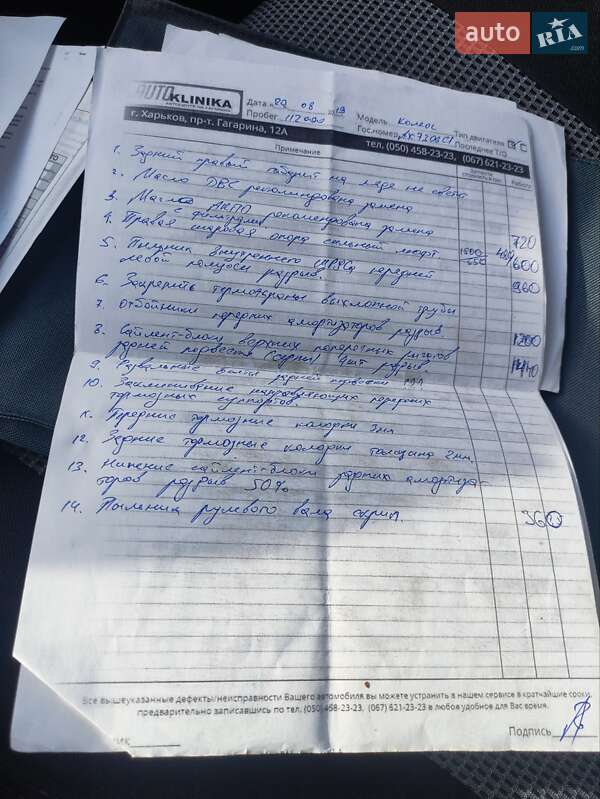 auto RIA .com
AUTO KLINIKA
Дата «29 08 2019 Модель Колеос Тип двигателя
Пробег 112000 Гос.номер Последнее Т/О
г. Харьков, пр-т. Гагарина, 12А тел. (050) 458-23-23, (067) 621-23-23
Примечание Работа
1. Задний правый габарит на ляде не светит
2. Масло ДВС рекомендована замена
3. Масло АКПП с фильтрами рекомендована замена 720
4. Правая шаровая опора сильный люфт 1500 480
5. Пыльник внутреннего ШРУСа передней 600
левой полуоси разрыв. 960
6. Закрепить термоэкраны выхлопной трубы
7. Отбойники передних амортизаторов разрыв 1200
8. Сайлент-блоки верхних поперечных рычагов
задней подвески 4шт разрыв. 1440
9. Развальные болты задней подвески
10. Закисание направляющих передних
тормозных суппортов.
11. Передние тормозные колодки 3мм
12. Задние тормозные колодки толщина 2мм
13. Нижние сайлент-блоки задних амортиза-
торов разрыв 50%
14. Пыльник рулевого вала скрип. 360
Все вышеуказанные дефекты/неисправности Вашего автомобиля вы можете устранить в нашем сервисе в кратчайшие сроки,
предварительно записавшись по тел. (050) 458-23-23, (067) 621-23-23 в любое удобное для Вас время.
Подпись